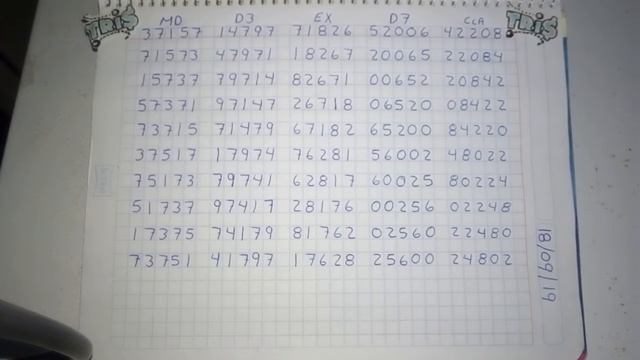 MD D3 EX D7 CLA
TRIS TRIS
37157 14797 71826 52006 42208
71573 47971 18267 20065 22084
15737 79714 82671 00652 20842
57371 97147 26718 06520 08422
73715 71479 67182 65200 84220
37517 17974 76281 56002 48022
75173 79741 62817 60025 80224
51737 97417 28176 00256 02248
17375 74179 81762 02560 22480
73751 41797 17628 25600 24802
19/09/18